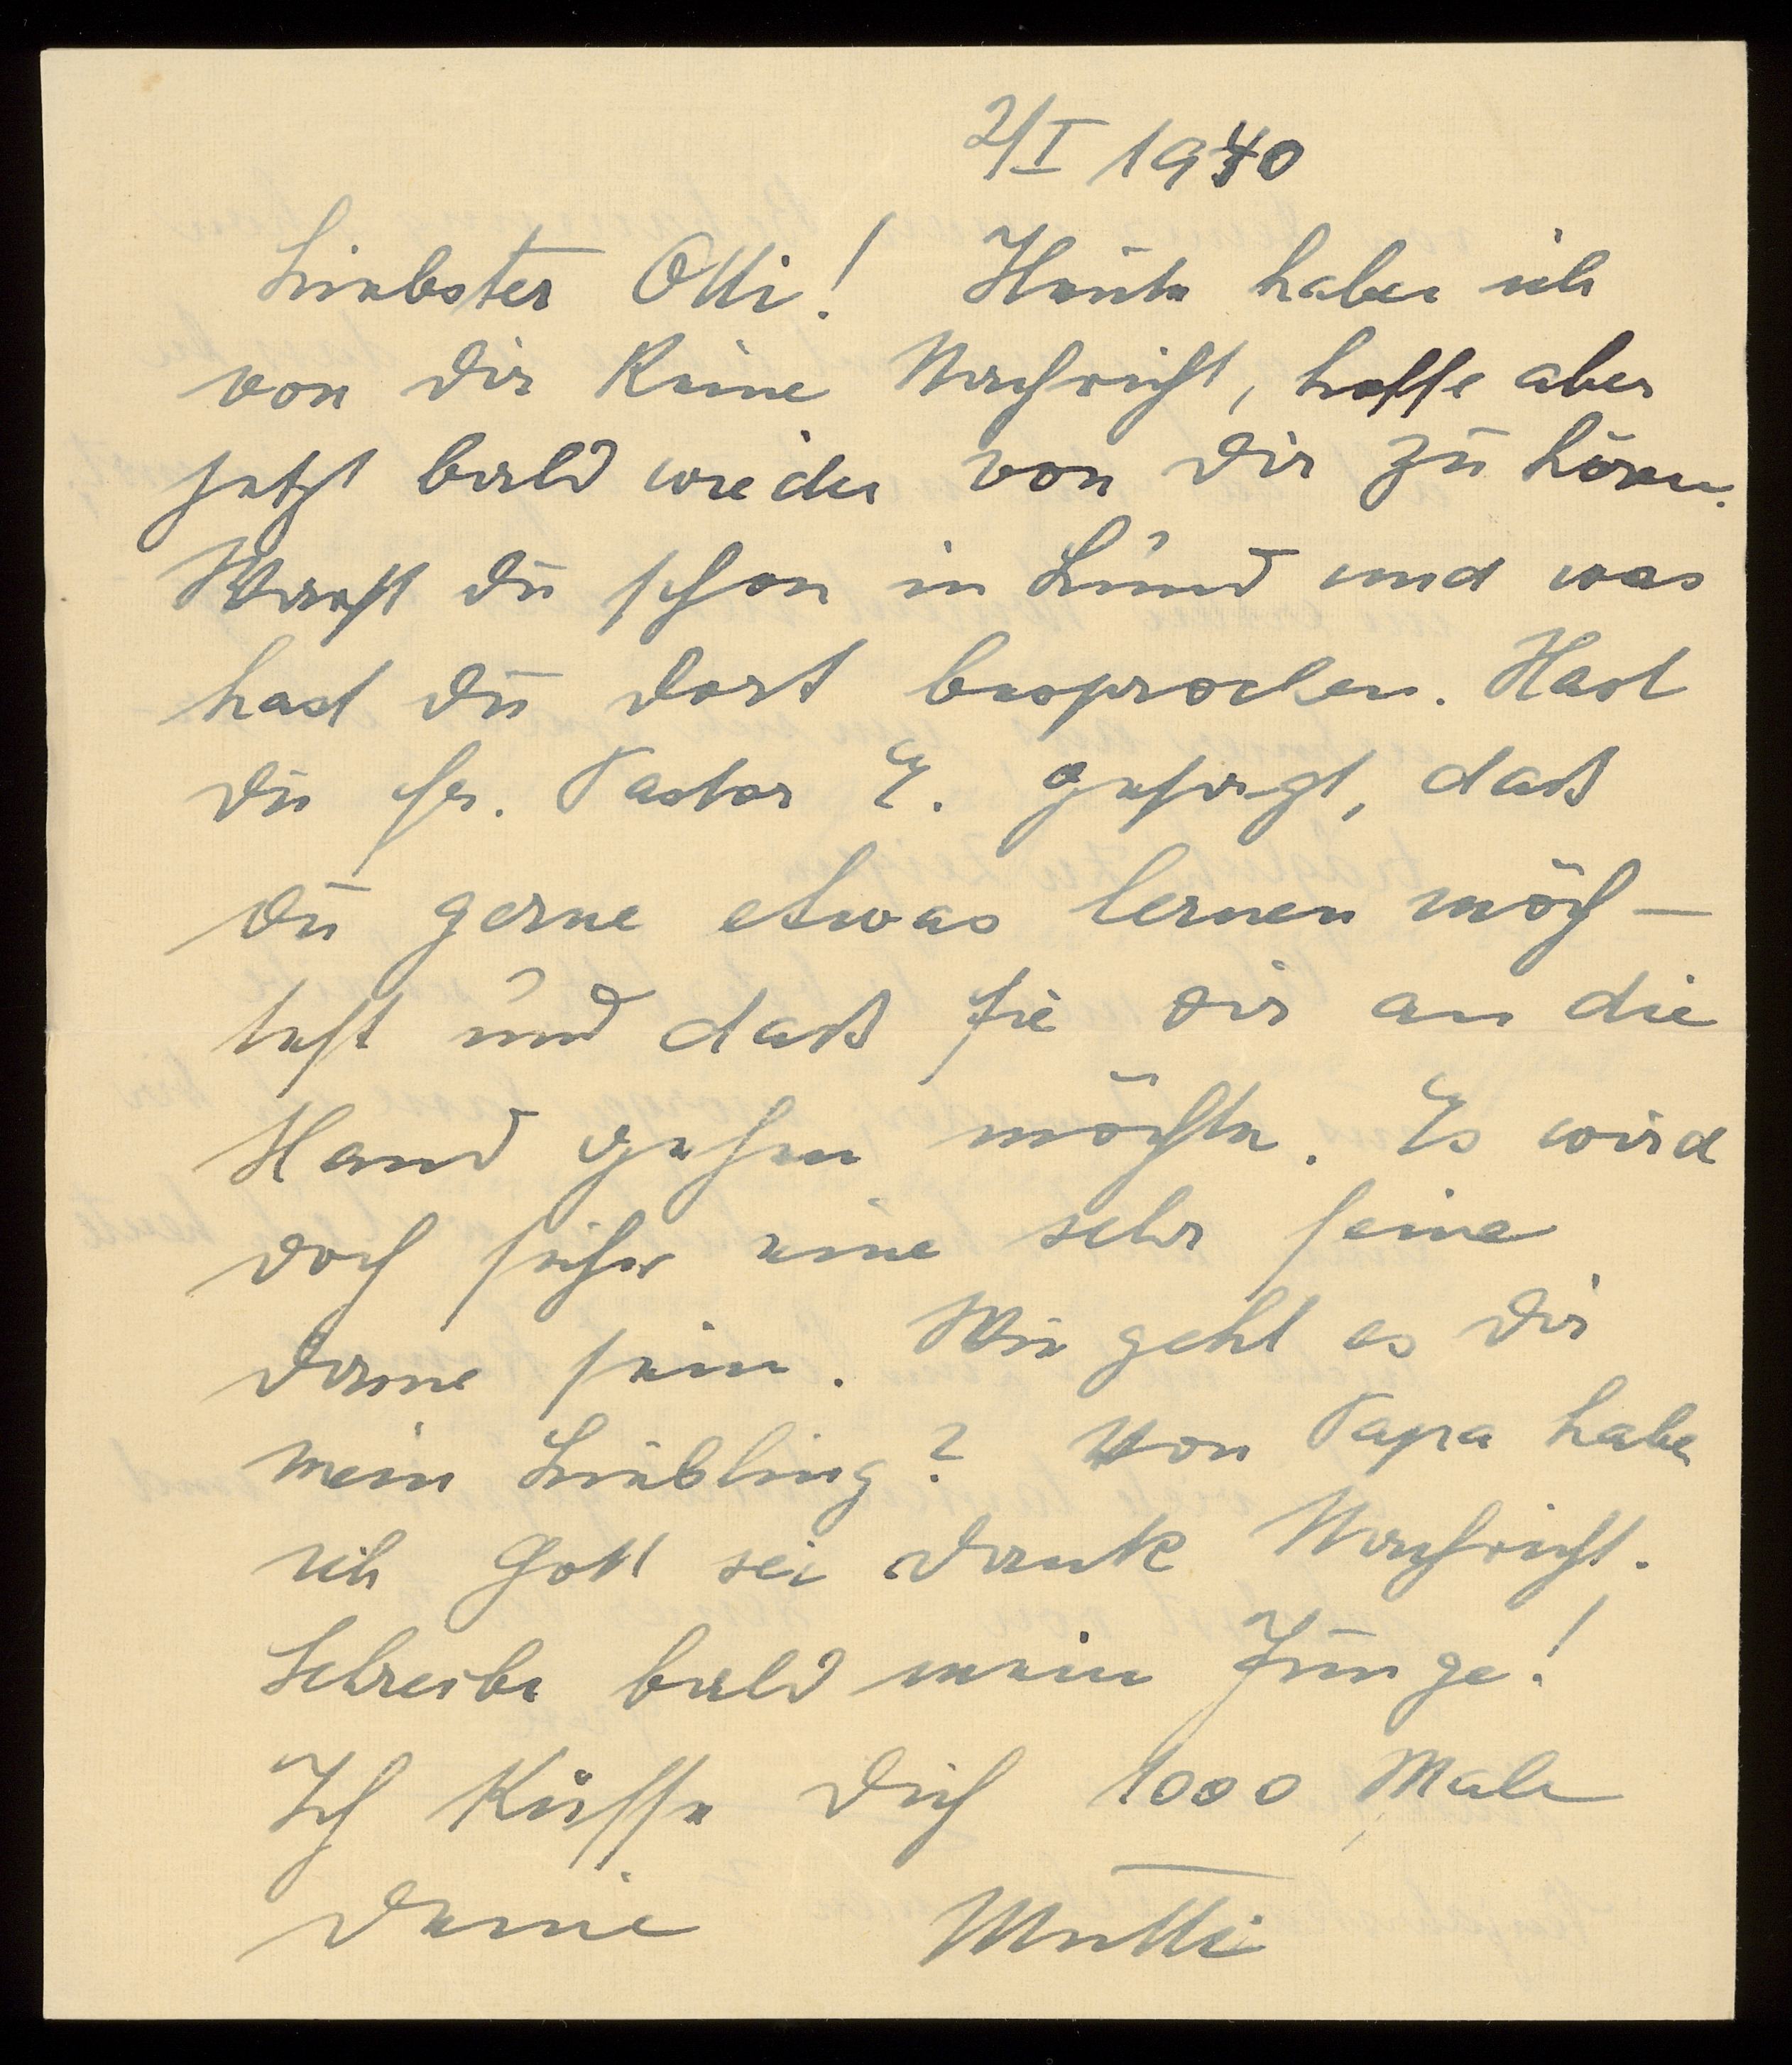 2/I 1940
Liebster Otti! Heute habe ich
von dir keine Nachricht, hoffe aber
jetzt bald wieder von dir zu hören.
Warst du schon in Lund und was
hast du dort besprochen. Hast
du fr. Pastor E. gesagt, daß
du gerne etwas lernen möch-
test und daß sie dir an die
Hand gehen möchte. Es wird
doch sicher eine sehr feine
Dame sein. Wie geht es dir
mein Liebling? Von Papa habe
ich Gott sei dank Nachricht.
Schreibe bald mein Junge!
Ich küsse dich 1000 Male
deine Mutti